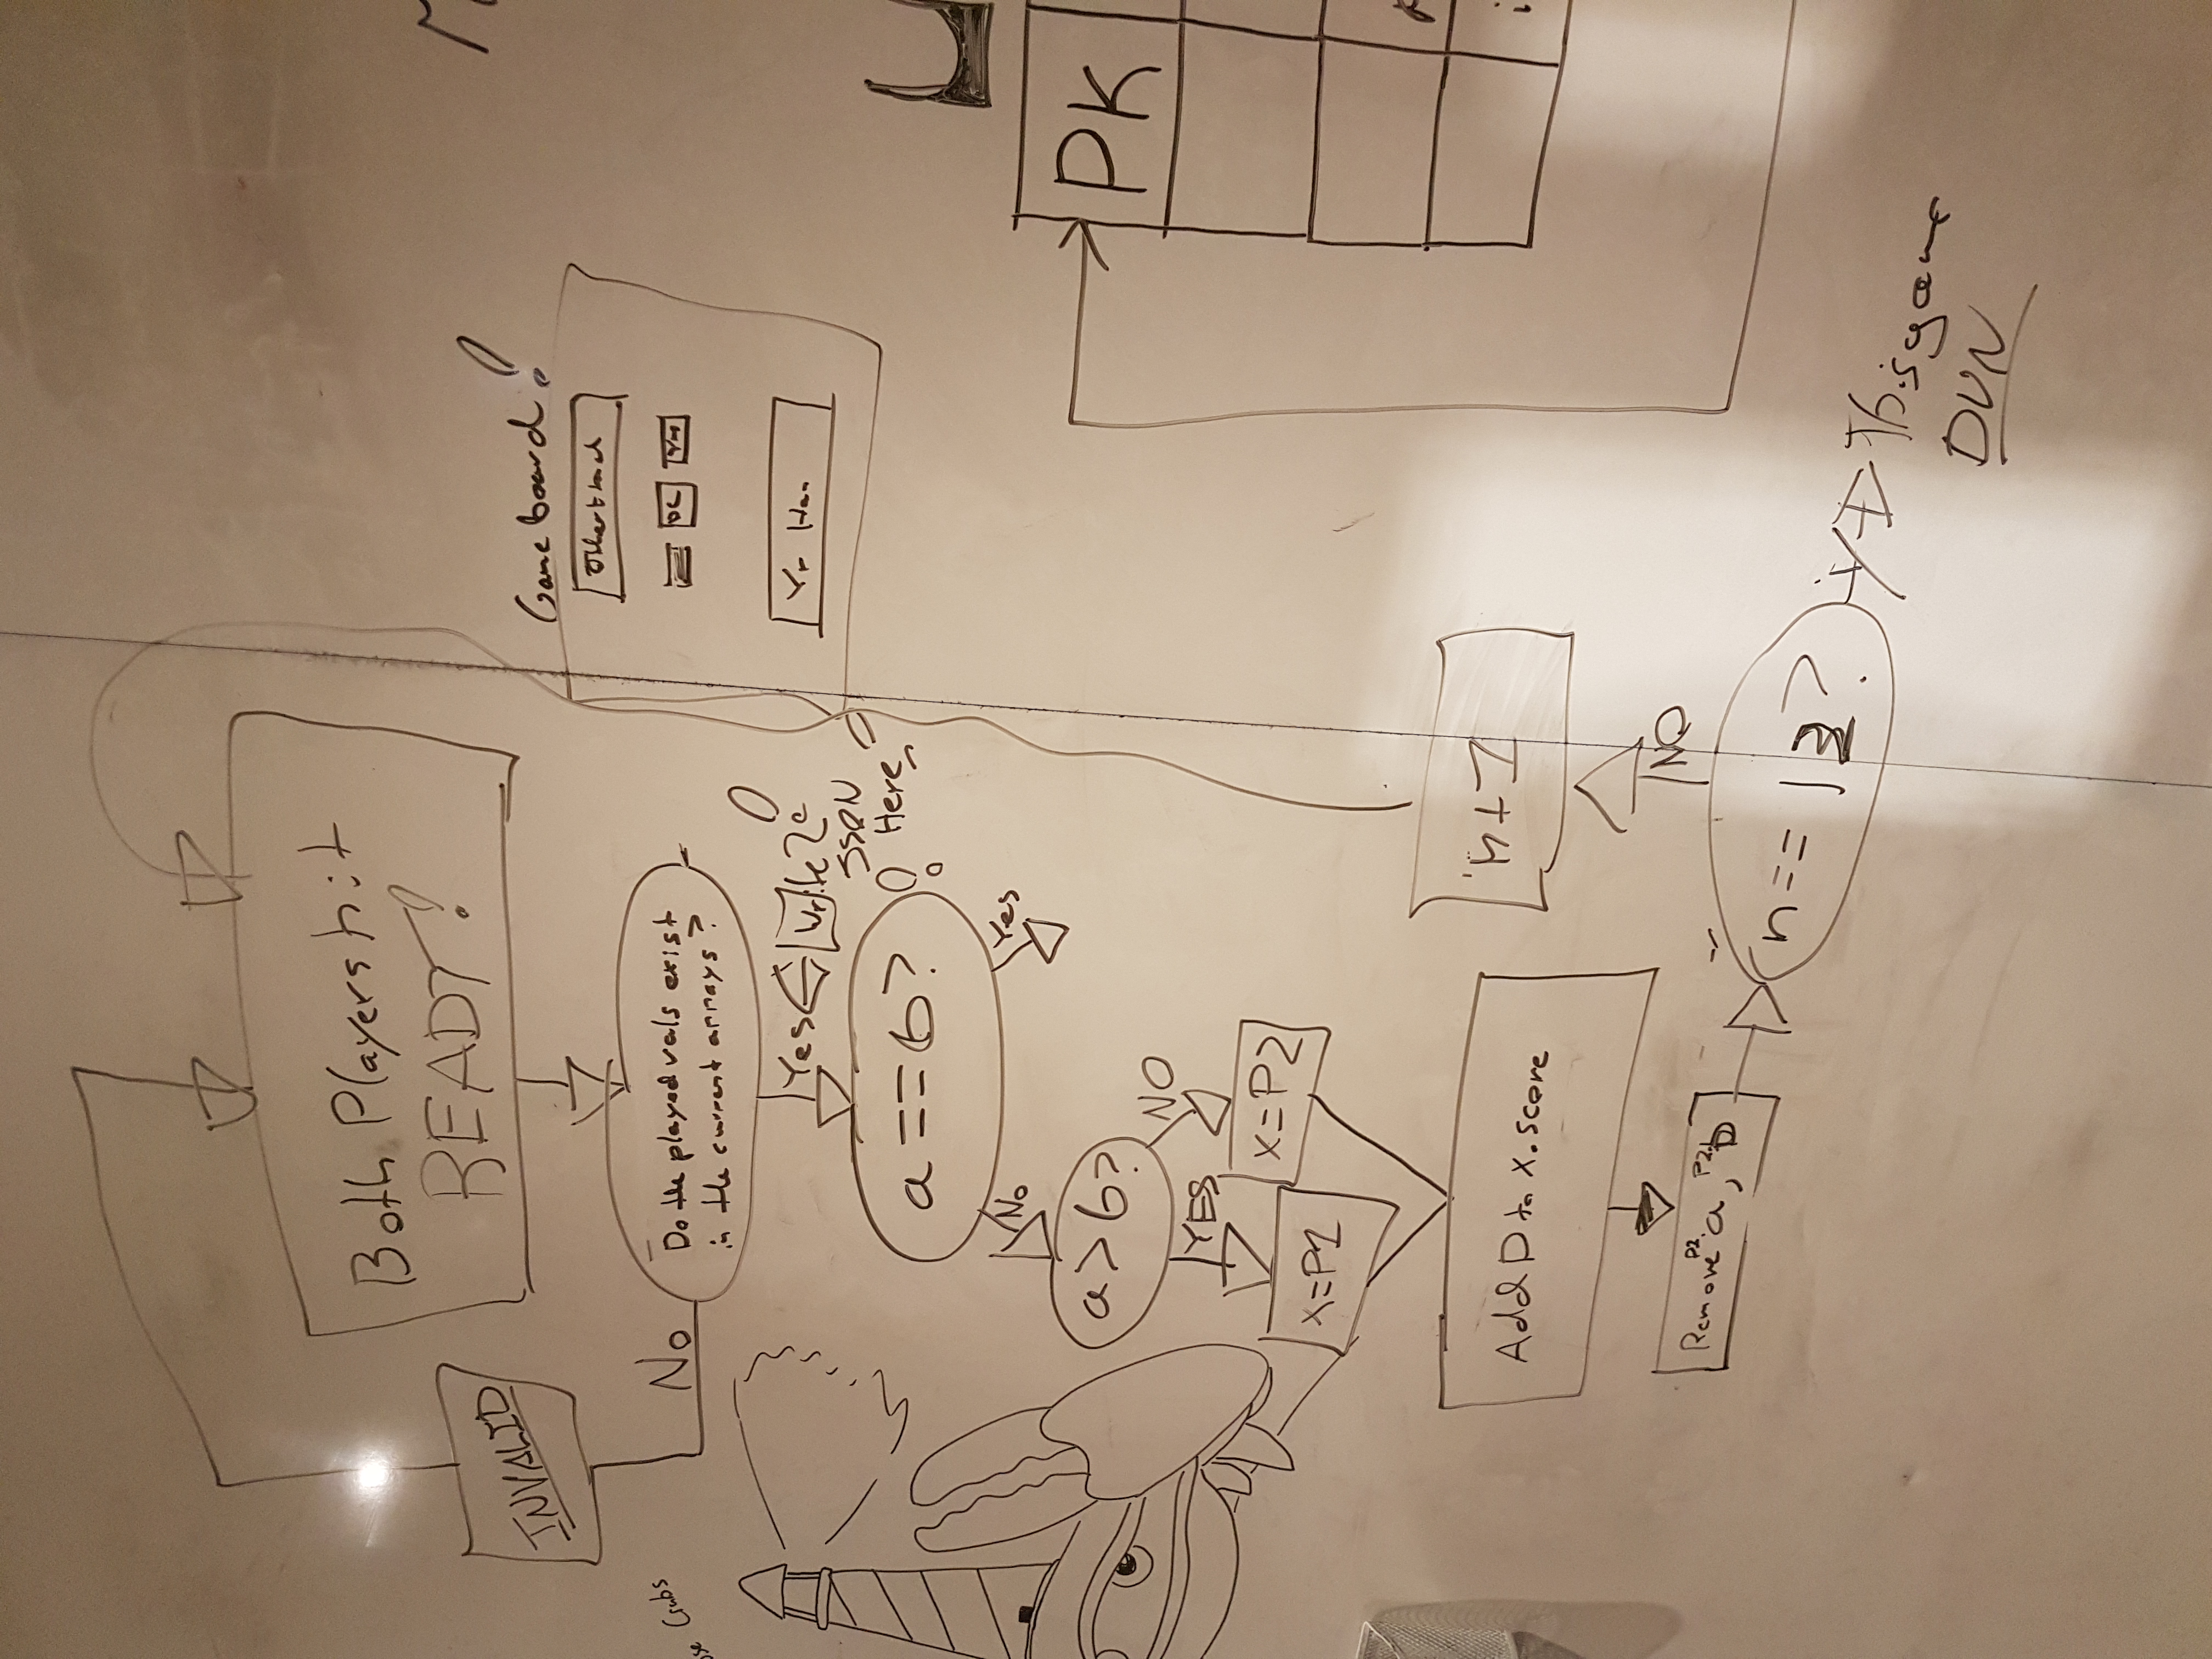 Both Players hit
READY!
INVALID
No
Do the played vals exist
in the current arrays?
Yes
Write 2
JSON
Here
a == b?
No
Yes
a > b?
YES
NO
x=P1
x=P2
Add D to x.score
Remove P2.a, P2.b
D
n+1
NO
n== 12?
This game
DUN
Game board!
Other hand
DC
Yr
PK
Crabs